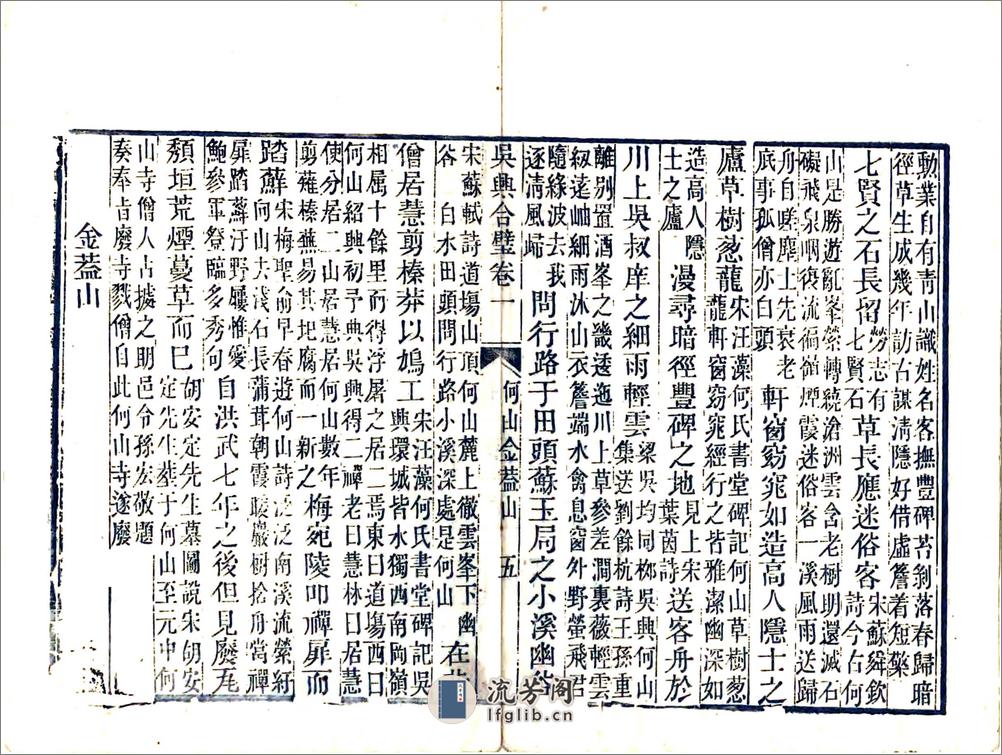 勳業自有青山識姓名客撫豐碑苔剝落春歸暗
徑草生成幾年訪古謀清隱好借虛簷着短檠
七賢之石長留勞志有七賢石草長應迷俗客宋蘇舜欽詩今古何
山是勝遊亂峯縈轉繞滄洲雲含老樹明還滅石
礙飛泉咽復流徧嶺煙霞迷俗客一溪風雨送歸
舟自嗟塵士先衰老底事孤僧亦白頭軒窗窈窕如造高人隱士之
廬草樹葱龍宋汪藻何氏書堂碑記何山草樹葱龍軒窗窈窕經行之皆雅潔幽深如
造高人隱士之廬漫尋暗徑豐碑之地見上宋葉茵詩送客舟於
川上吳叔庠之細雨輕雲梁吳均同栁吳興何山集送劉餘杭詩王孫重
離別置酒峯之畿逶迤川上草參差澗裏薇輕雲
紉遠岫細雨沐山衣簷端水禽息窗外野螢飛君
隨綠波去我逐清風歸問行路于田頭蘇玉局之小溪幽谷
吳興合璧卷一 何山金葢山 五
宋蘇軾詩道塲山頂何山麓上徹雲峯下幽谷 白水田頭問行路小溪深處是何山在昔
僧居慧剪榛莽以鳩工宋汪藻何氏書堂碑記吳興環城皆水獨西南岡嶺
相屬十餘里而得浮屠之居二焉東曰道塲西曰
何山紹興初予典吳興得二禪老曰慧林曰居慧
使分居二山居慧居何山數年剪薙榛蕪易其圯腐而一新之梅宛陵叩禪扉而
踏蘚宋梅聖俞早春遊何山詩泛泛南溪流縈紆向山去淺石長蒲茸朝霞暖巖樹捨舟當禪
扉踏蘚汙野屨惟愛鮑參軍登臨多秀句自洪武七年之後但見廢瓦
頽垣荒煙蔓草而已胡安定先生墓圖說宋胡安定先生塟于何山至元中何
山寺僧人占據之明邑令孫宏敬題
奏奉旨廢寺戮僧自此何山寺遂廢
金葢山
流芳阁
lfglib.cn